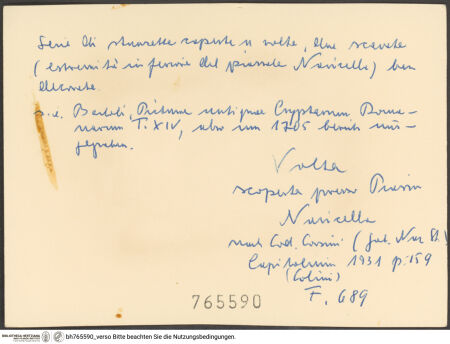 Serie di stanzette coperte a volte, ben scavate
(estremità inferiore del piazzale Navicella) ben
decorate.
s. a. Bartoli, Picturae antiquae Cryptarum Roma-
narum T. XIV, also um 1705 bereits aus-
gegraben.
Volta
scoperta presso Piazza
Navicella
nach Cod. Corsini (Gab. Naz. St.)
Capitolium 1931 p. 159
(Colini)
F. 689
765590
BIBLIOTHECA HERTZIANA bh765590_verso Bitte beachten Sie die Nutzungsbedingungen.